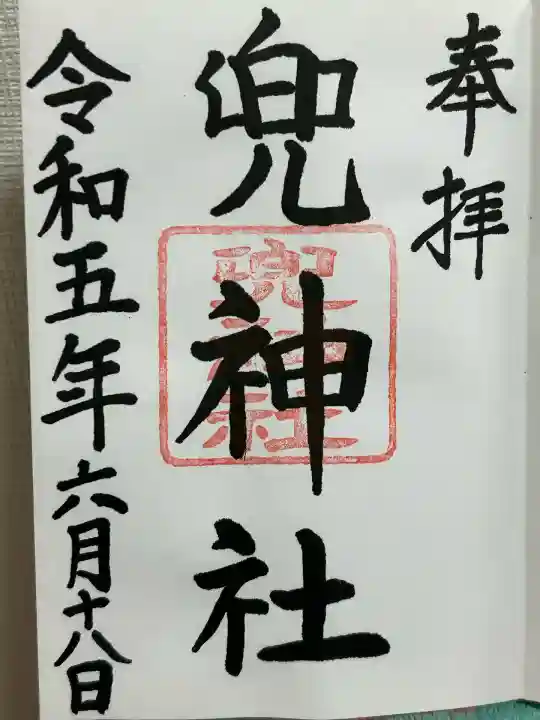 奉拝
兜神社
兜神社
令和五年六月十八日